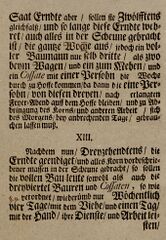 Saat Erndte aber / sollen sie Zwölfftens
gleichfals / und so lange diese Erndte weh-
ret / auch alles in der Scheune gebracht
ist / die gantze Woche aus / jedoch ein vol-
ler Baumann nur selb dritte / als zwo
beym Wagen / und ein zum Mehen / und
ein Cossate mit einer Persohn die Woche
durch zu Hofe kommen / da dann die eine Per-
sohn / von diesen dreyen / nach erlangten
Feyer-Abend auf dem Hofe bleiben / und zu
Abbringung des Korns / und anderer Arbeit /
sich des Morgens, bey anbrechenden Tage, ge-
brauchen lassen muß.
XIII.
Nachdem nun / Dreyzehendtens / die
Erndte geendiget / und alles Korn vorbeschrie-
bener massen in der Scheune gebracht / so sollen
die vollen Bau leute sowol als auch die
dreyviertel Bauren und Cossaten / so wie
verordnet / wiederumb nur Wöchentlich
vier Tage / mit dem Viehe / und einen Tag /
mit der Hand / ihre Dienste / und Arbeit lei-
sten /